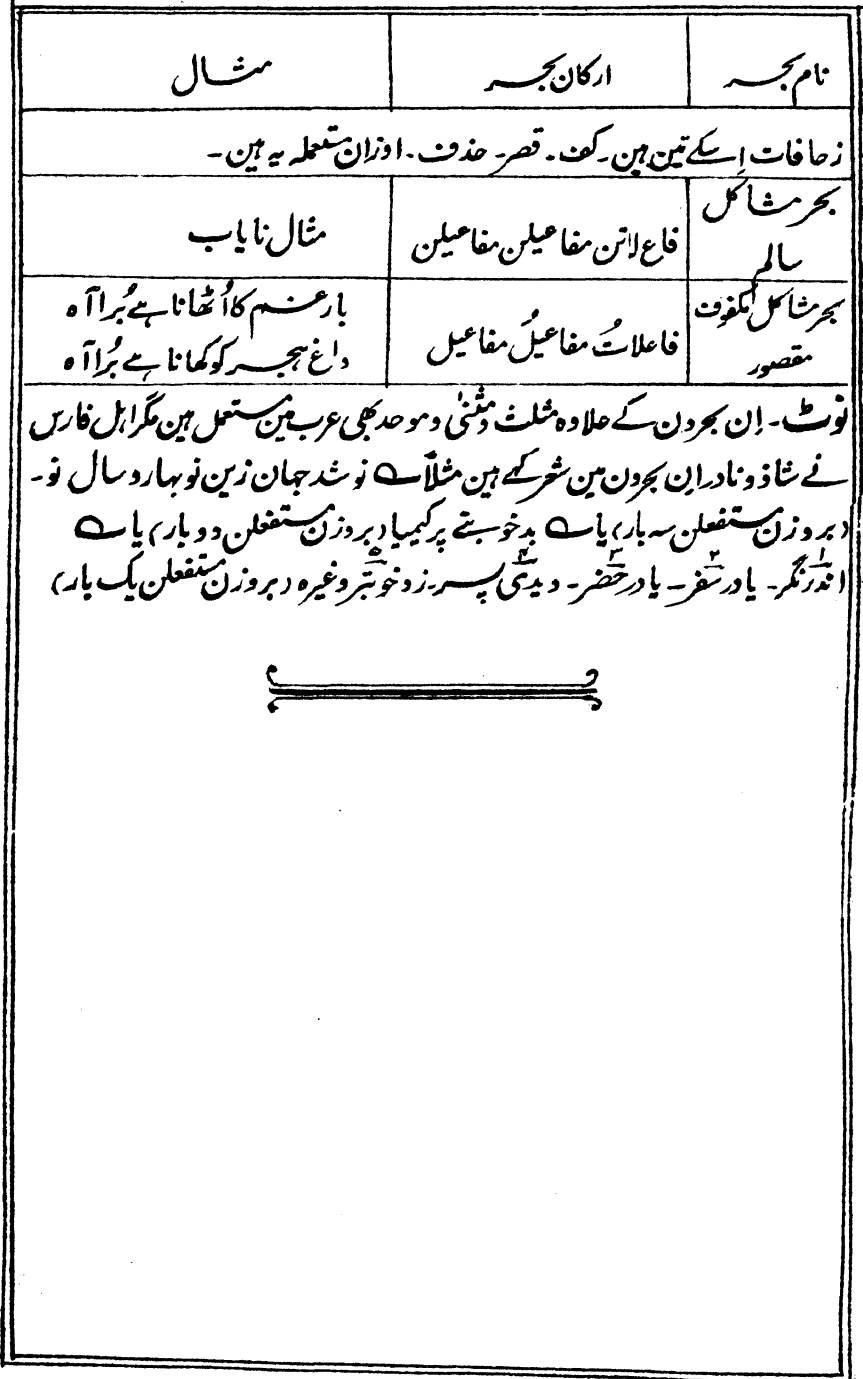 نام بحر ارکان بحر مثال
زحافات اِسکے تین ہین۔ کف۔ قصر۔ حذف۔ اوزان مستعملہ یہ ہین۔
بحر مشاکل سالم فاع لاتن مفاعیلن مفاعیلن مثال نایاب
بحر مشاکل مکفوف مقصور فاعلاتُ مفاعیلُ مفاعیل بارِ غم کا اُٹھانا ہے بُرا آہ
داغ ہجر کو کھانا ہے بُرا آہ
نوٹ۔ اِن بحرون کے علاوہ مثلث و مثنیٰ و موحد بھی عرب مین مستعمل ہین مگر اہل فارس
نے شاذ و نادر اِن بحرون مین شعر کہے ہین مثلاً ؎ نو شد جہان زین نو بہار و سال نو۔
(بر وزن مستفعلن سہ بار) یا ؎ بدخو بتے پر کیمیا (بر وزن مستفعلن دو بار) یا ؎
اندر نگر۱۔ یا در سفر۲۔ یا در حضر۳۔ دیدی پسر۴۔ زو خوبتر۵ وغیرہ (بر وزن مستفعلن یک بار)